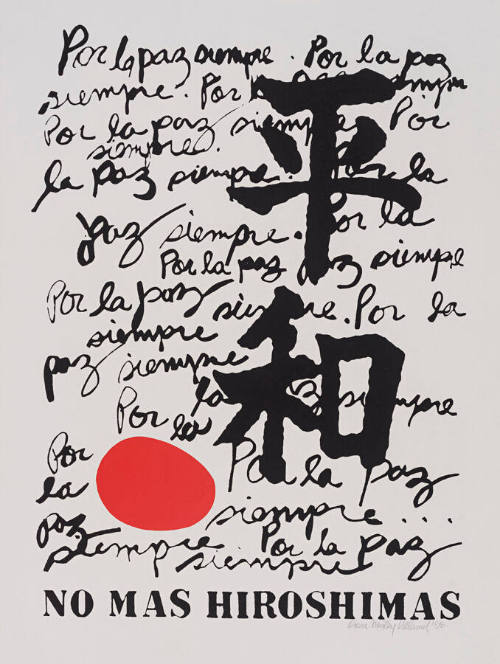 Por la paz siempre. Por la paz
siempre. Por
Por la paz siempre Por
siempre.
la paz siempre. la
paz siempre. Por la
Por la paz siempre
Por la paz Por la
siempre
paz siempre
la siempre
Por la
Por la paz
Por
la
paz siempre...
siempre Por la paz
siempre siempre
平和
NO MAS HIROSHIMAS